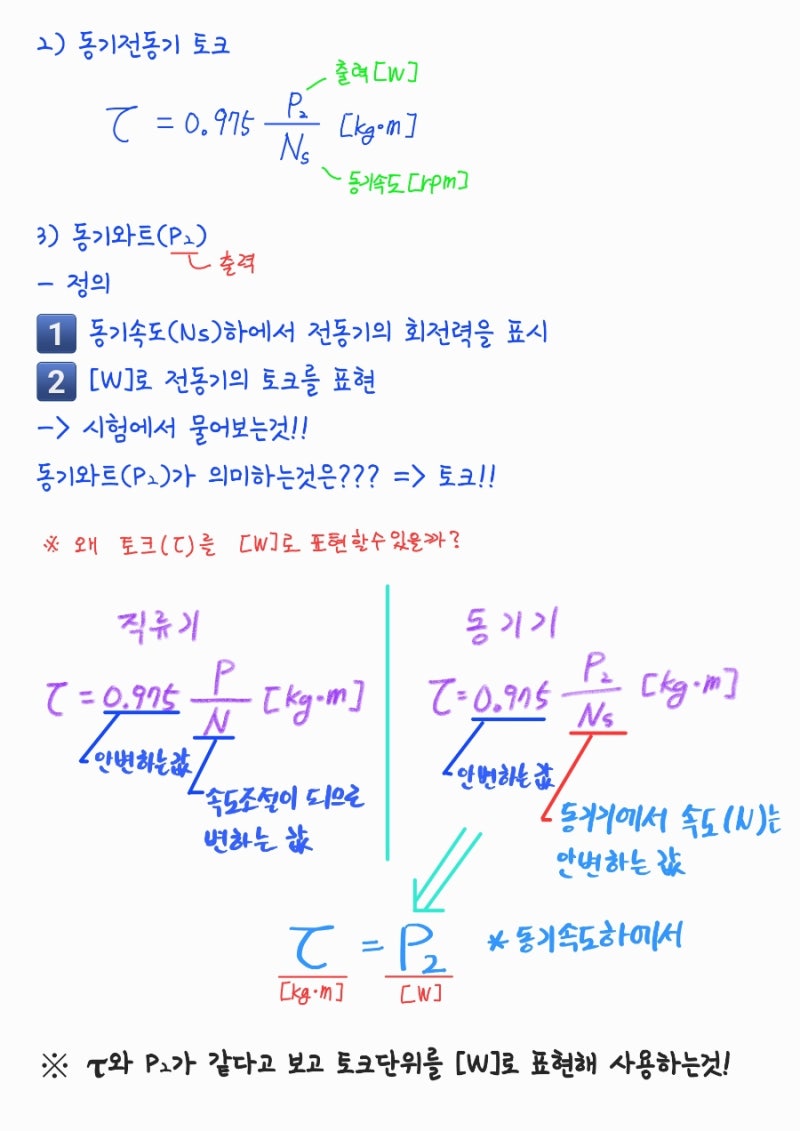 2) 동기전동기 토크
출력[W]
τ = 0.975 P₂/Nₛ [kg·m]
동기속도[rpm]
3) 동기와트(P₂)
출력
- 정의
1 동기속도(Ns)하에서 전동기의 회전력을 표시
2 [W]로 전동기의 토크를 표현
-> 시험에서 물어보는것!!
동기와트(P₂)가 의미하는것은??? => 토크!!
※ 왜 토크(τ)를 [W]로 표현할수있을까?
직류기
τ = 0.975 P/N [kg·m]
안변하는값
속도조절이 되므로
변하는 값
동기기
τ = 0.975 P₂/Nₛ [kg·m]
안변하는값
동기기에서 속도(N)는
안변하는 값
τ = P₂ *동기속도하에서
[kg·m] [W]
※ τ와 P₂가 같다고 보고 토크단위를 [W]로 표현해 사용하는것!